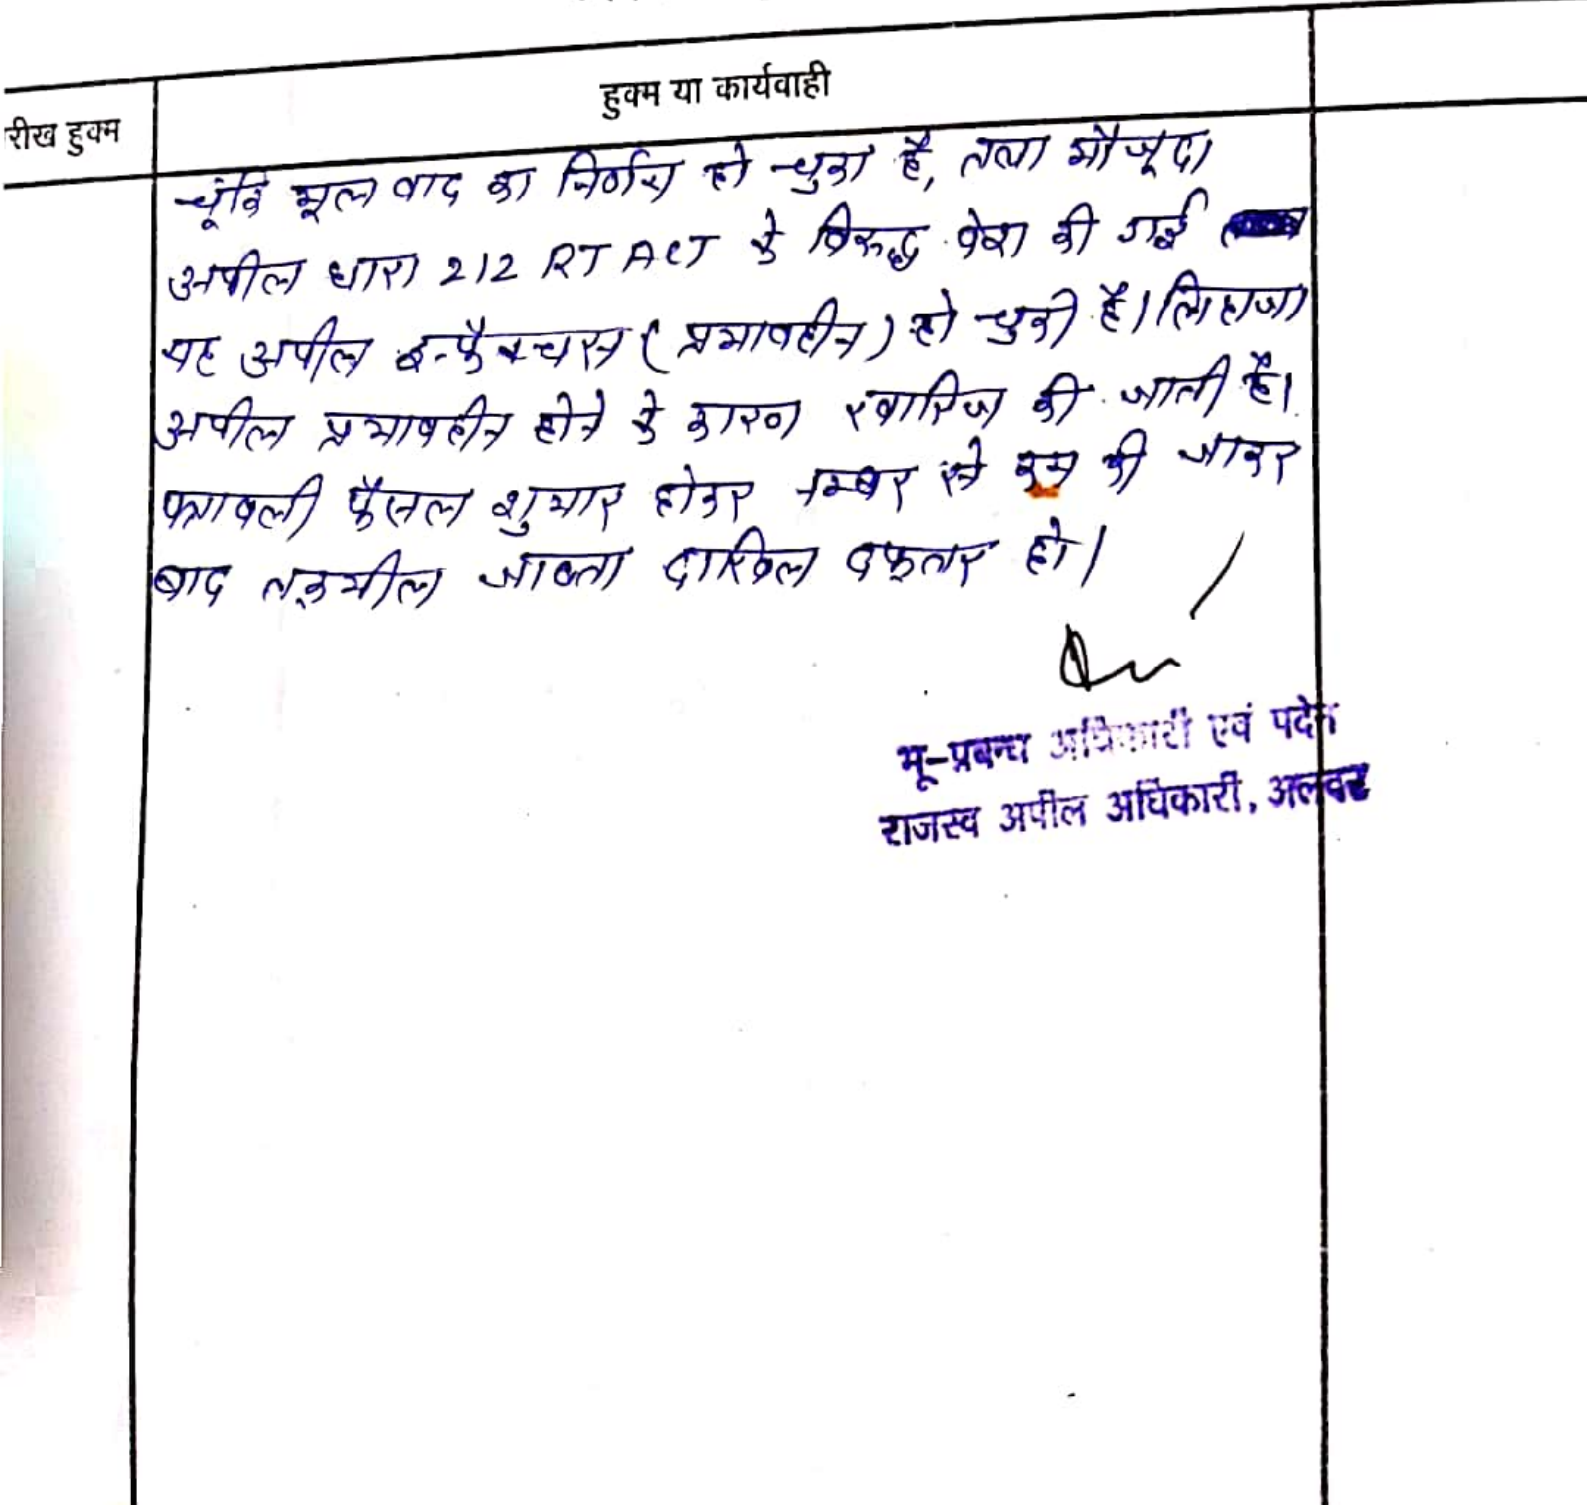 हुक्म या कार्यवाही
रीख हुक्म
चूंकि मूल वाद का निर्णय हो चुका है, तथा मौजूदा
अपील धारा 212 RT ACT के विरुद्ध पेश की गई
यह अपील इन्फैक्चस (प्रभावहीन) हो चुकी है। लिहाजा
अपील प्रभावहीन होने के कारण खारिज की जाती है।
पत्रावली फैसल शुमार होकर नम्बर से कम की जाकर
बाद तकमील जाब्ता दाखिल दफ्तर हो।
भू-प्रबन्ध अधिकारी एवं पदेन
राजस्व अपील अधिकारी, अलवर